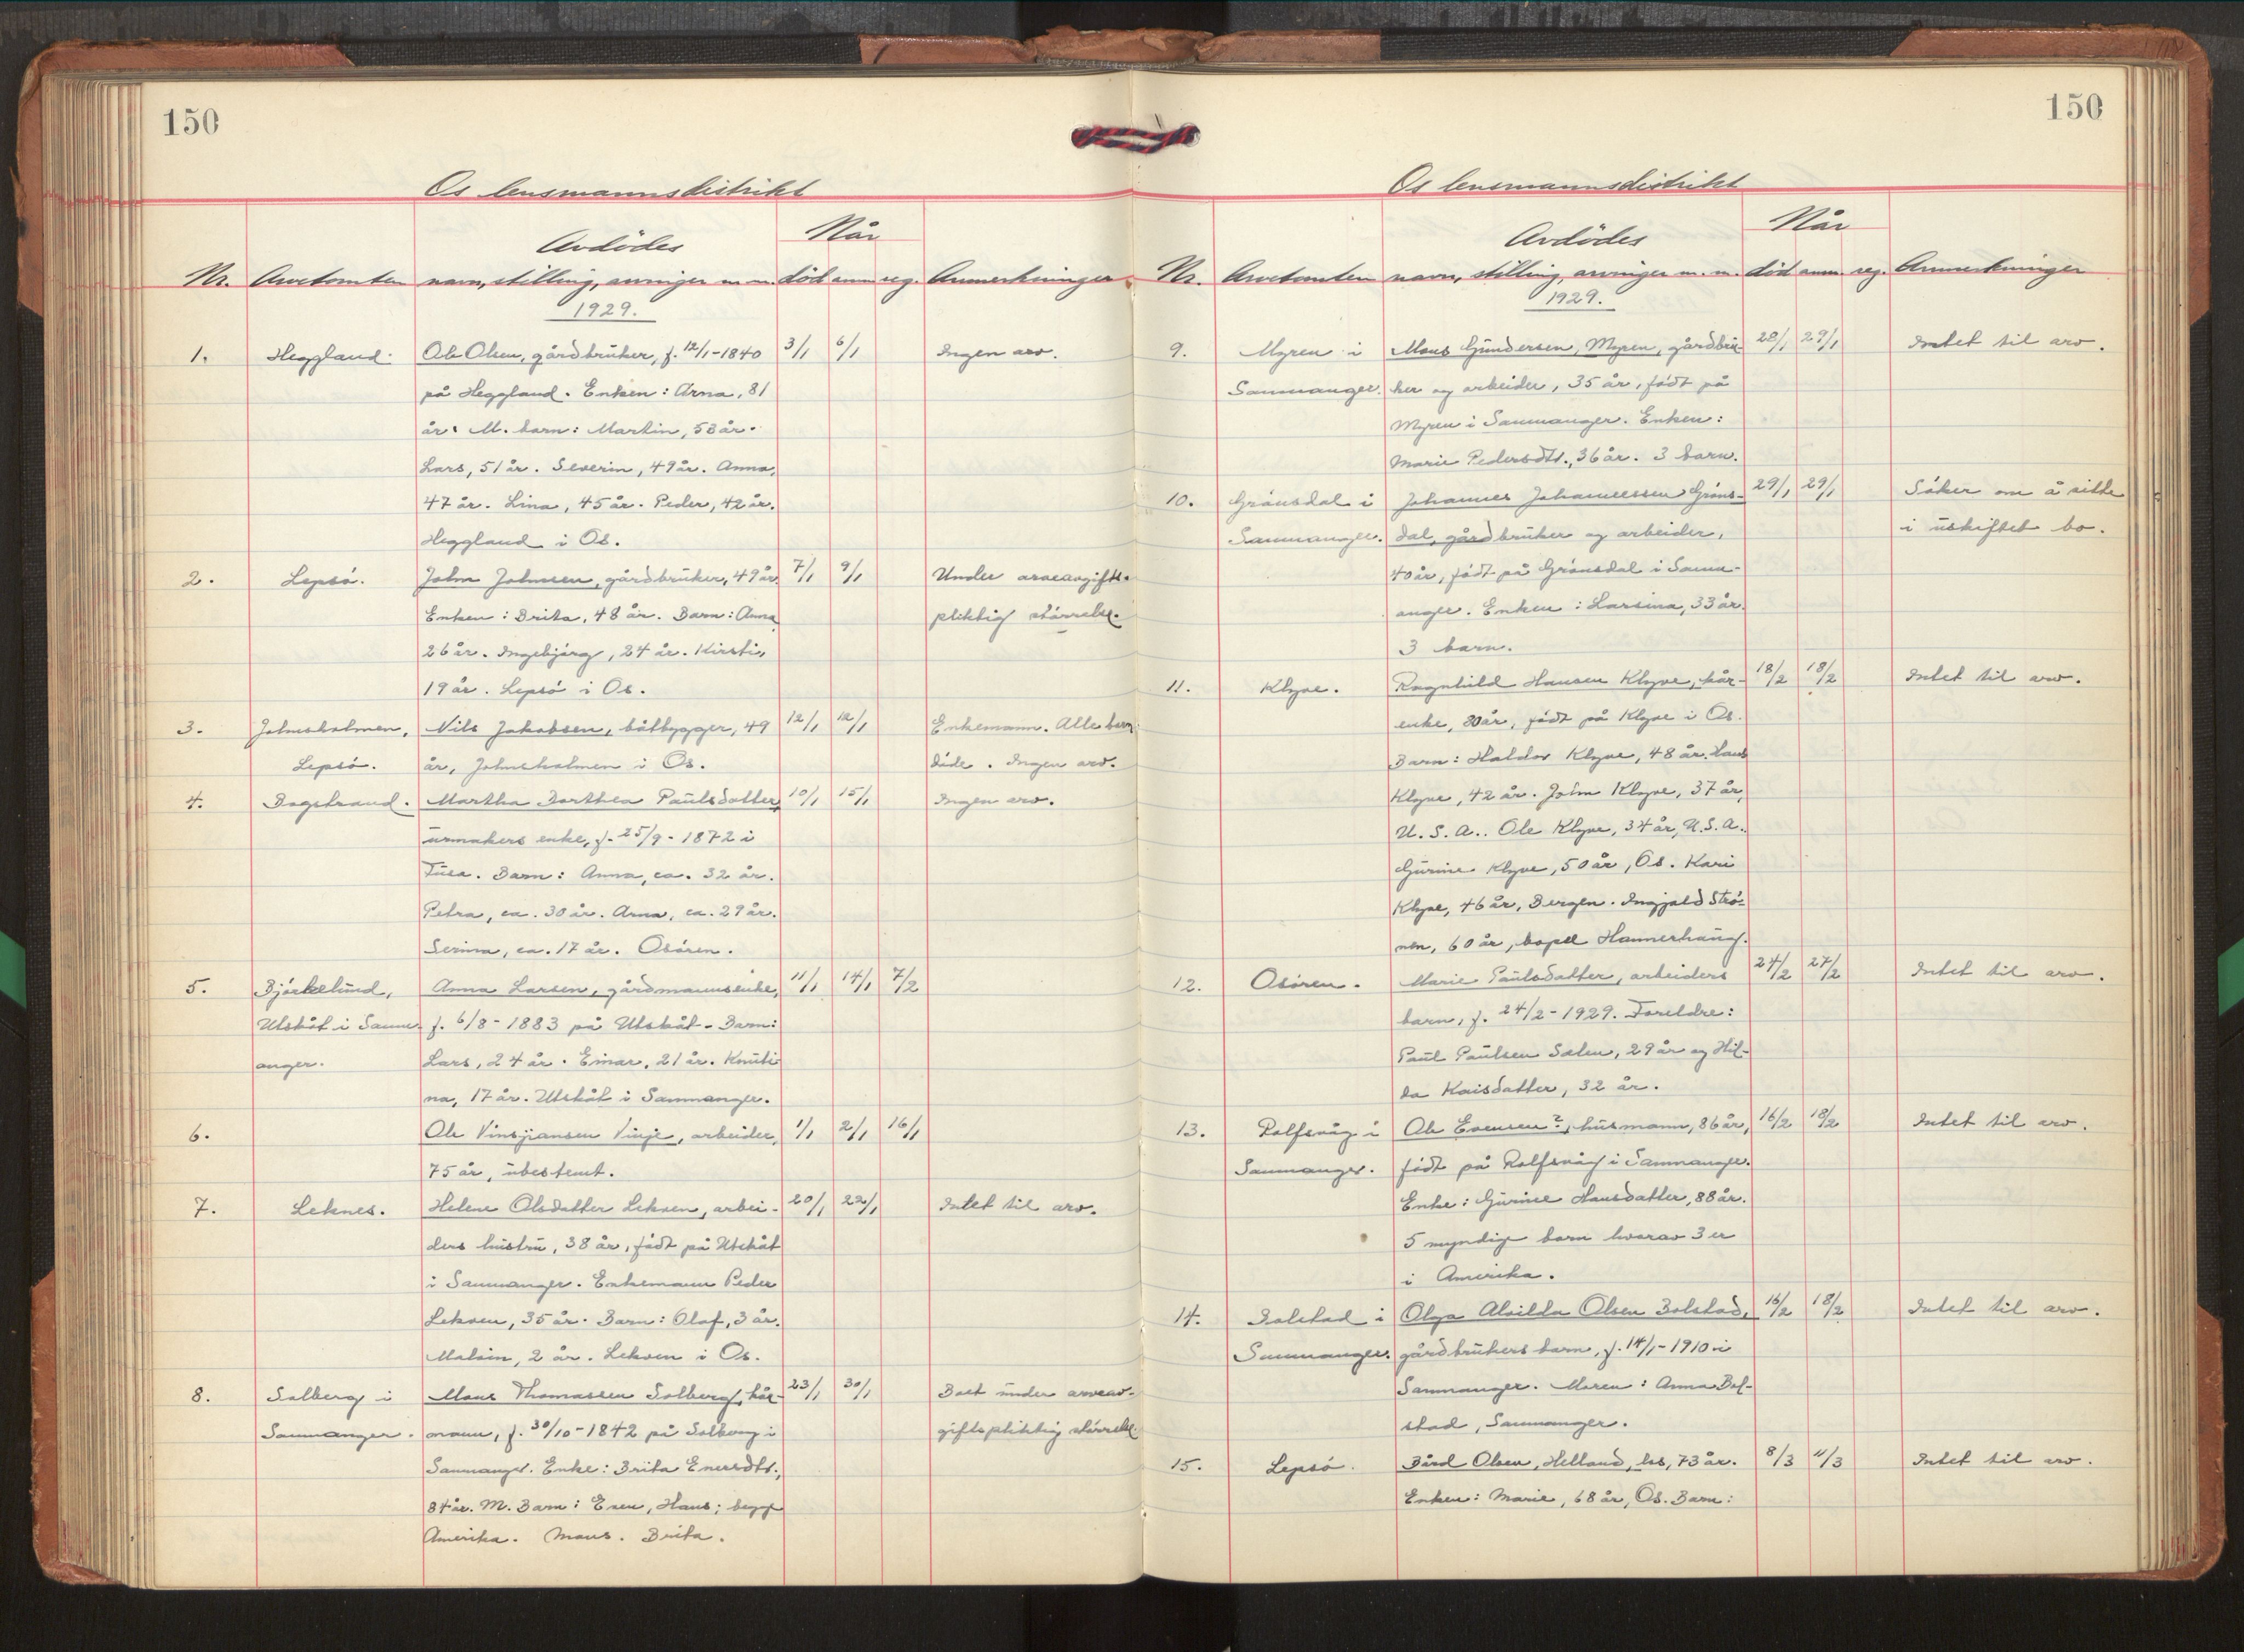 150
Os lensmannsdistrikt
Når
Avdödes
Nr. Arvetomten navn, stilling, arvinger m. m. död anm. reg. Anmerkninger
1929.
1. Heggland. Ole Olsen, gårdbrüker, f. 12/1-1840 3/1 6/1 Ingen arv.
på Heggland. Enken: Arna, 81
år. M. barn: Martin, 53 år.
Lars, 51 år. Severin, 49 år. Anna,
47 år. Lina, 45 år. Peder, 42 år.
Heggland i Os.
2. Lepsö. John Johnsen, gårdbrüker, 49 år 7/1 9/1 Under arveavgifts-
Enken: Brita, 48 år. Barn: Anna pliktig störrelse.
26 år. Ingebjörg, 24 år. Kirsti,
19 år. Lepsö i Os.
3. Johnsholmen, Nils Jakobsen, båtbygger, 49 12/1 12/1 Enkemann. Alle barn
Lepsö. år, Johnsholmen i Os. döde. Ingen arv.
4. Bagstrand. Martha Dorthea Paülsdatter, 10/1 15/1 Ingen arv.
ürmakers enke, f. 25/9-1872 i
Füsa. Barn: Anna, ca. 32 år.
Petra, ca. 30 år. Arna, ca. 29 år.
Serina, ca. 17 år. Osören.
5. Björkelünd, Anna Larsen, gårdmannsenke, 11/1 14/1 7/2
Utskåt i Samn- f. 6/8-1883 på Utskåt. Barn:
anger. Lars, 24 år. Einar, 21 år. Knüti-
na, 17 år. Utskåt i Samnanger.
6. Ole Vinsjansen Vinje, arbeider, 1/1 2/1 16/1
75 år, übestemt.
7. Leknes. Helene Olsdatter Lekven, arbei- 20/1 22/1 Intet til arv.
ders hüstrü, 38 år, födt på Utskåt
i Samnanger. Enkemann Peder
Lekven, 35 år. Barn: Olaf, 3 år.
Malvin, 2 år. Lekven i Os.
8. Solberg i Mons Thomassen Solberg, kår- 23/1 30/1 Boet ünder arveav-
Samnanger. mann, f. 30/10-1842 på Solberg i giftspliktig störrelse.
Samnanger. Enke: Brita Enersdtr.,
84 år. M. Barn: Even, Hans; begge
Amerika. Mons. Brita.
150
Os lensmannsdistrikt
Når
Avdödes
Nr. Arvetomten navn, stilling, arvinger m. m. död anm. reg. Anmerkninger
1929.
9. Myren i Mons Gündersen, Myren, gårdbrü- 28/1 29/1 Intet til arv.
Samnanger. ker og arbeider, 35 år, födt på
Myren i Samnanger. Enken:
Marie Pedersdtr., 36 år. 3 barn.
10. Grönsdal i Johannes Johannessen Gröns- 29/1 29/1 Söker om å sitte
Samnanger. dal, gårdbrüker og arbeider, i üskiftet bo.
40 år, födt på Grönsdal i Samn-
anger. Enken: Larsina, 33 år.
3 barn.
11. Klyve. Ragnhild Hansen Klyve, kår- 18/2 18/2 Intet til arv.
enke, 80 år, födt på Klyve i Os.
Barn: Haldor Klyve, 48 år. Hans
Klyve, 42 år. John Klyve, 37 år,
U. S. A.. Ole Klyve, 34 år, U. S. A.
Gürine Klyve, 50 år, Os. Kari
Klyve, 46 år, Bergen. Ingjald Strö-
nen, 60 år, bopel Hannerhaüg.
12. Osören. Marie Paülsdatter, arbeiders 24/2 27/2 Intet til arv.
barn, f. 24/2-1929. Foreldre:
Paül Paülsen Salen, 29 år og Hil-
da Kaisdatter, 32 år.
13. Rolfsvåg i Ole Evensen?, hüsmann, 86 år, 16/2 18/2 Intet til arv.
Samnanger. födt på Rolfsvåg i Samnanger.
Enke: Gürine Hansdatter, 88 år.
5 myndige barn hvorav 3 er
i Amerika.
14. Bolstad i Olga Alvilda Olsen Bolstad, 16/2 18/2 Intet til arv.
Samnanger. gårdbrükers barn, f. 14/1-1910 i
Samnanger. Moren: Anna Bol-
stad, Samnanger.
15. Lepsö. Bård Olsen, Helland, los, 73 år. 8/3 11/3 Intet til arv.
Enken: Marie, 68 år, Os. Barn: